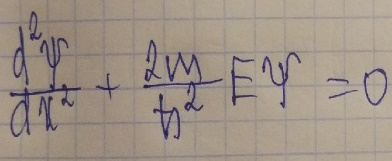 d²ψ/dx² + 2m/ħ² Eψ = 0